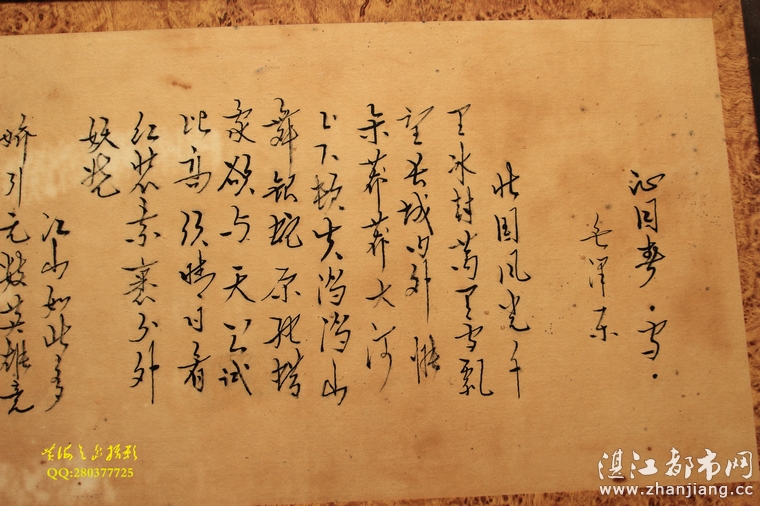 沁园春·雪·
毛泽东
北国风光千
里冰封万里雪飘
望长城内外惟
余莽莽大河
上下顿失滔滔山
舞银蛇原驰蜡
象欲与天公试
比高须晴日看
红装素裹分外
妖娆
江山如此多
娇引无数英雄竞
QQ:280377725
湛江都市网
www.zhanjiang.cc